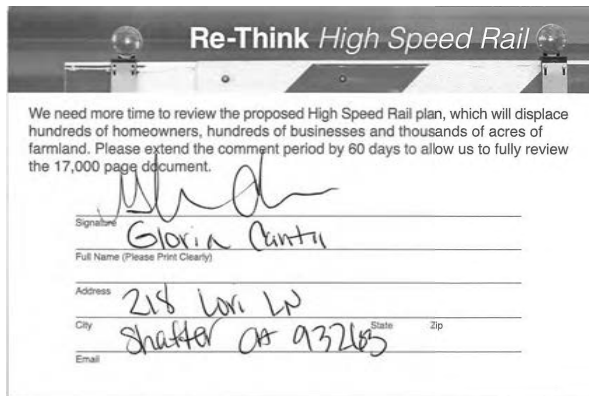 Re-Think High Speed Rail
We need more time to review the proposed High Speed Rail plan, which will displace
hundreds of homeowners, hundreds of businesses and thousands of acres of
farmland. Please extend the comment period by 60 days to allow us to fully review
the 17,000 page document.
Signature
Gloria Cantu
Full Name (Please Print Clearly)
Address
218 Lori LN
City State Zip
Shafter CA 93263
Email